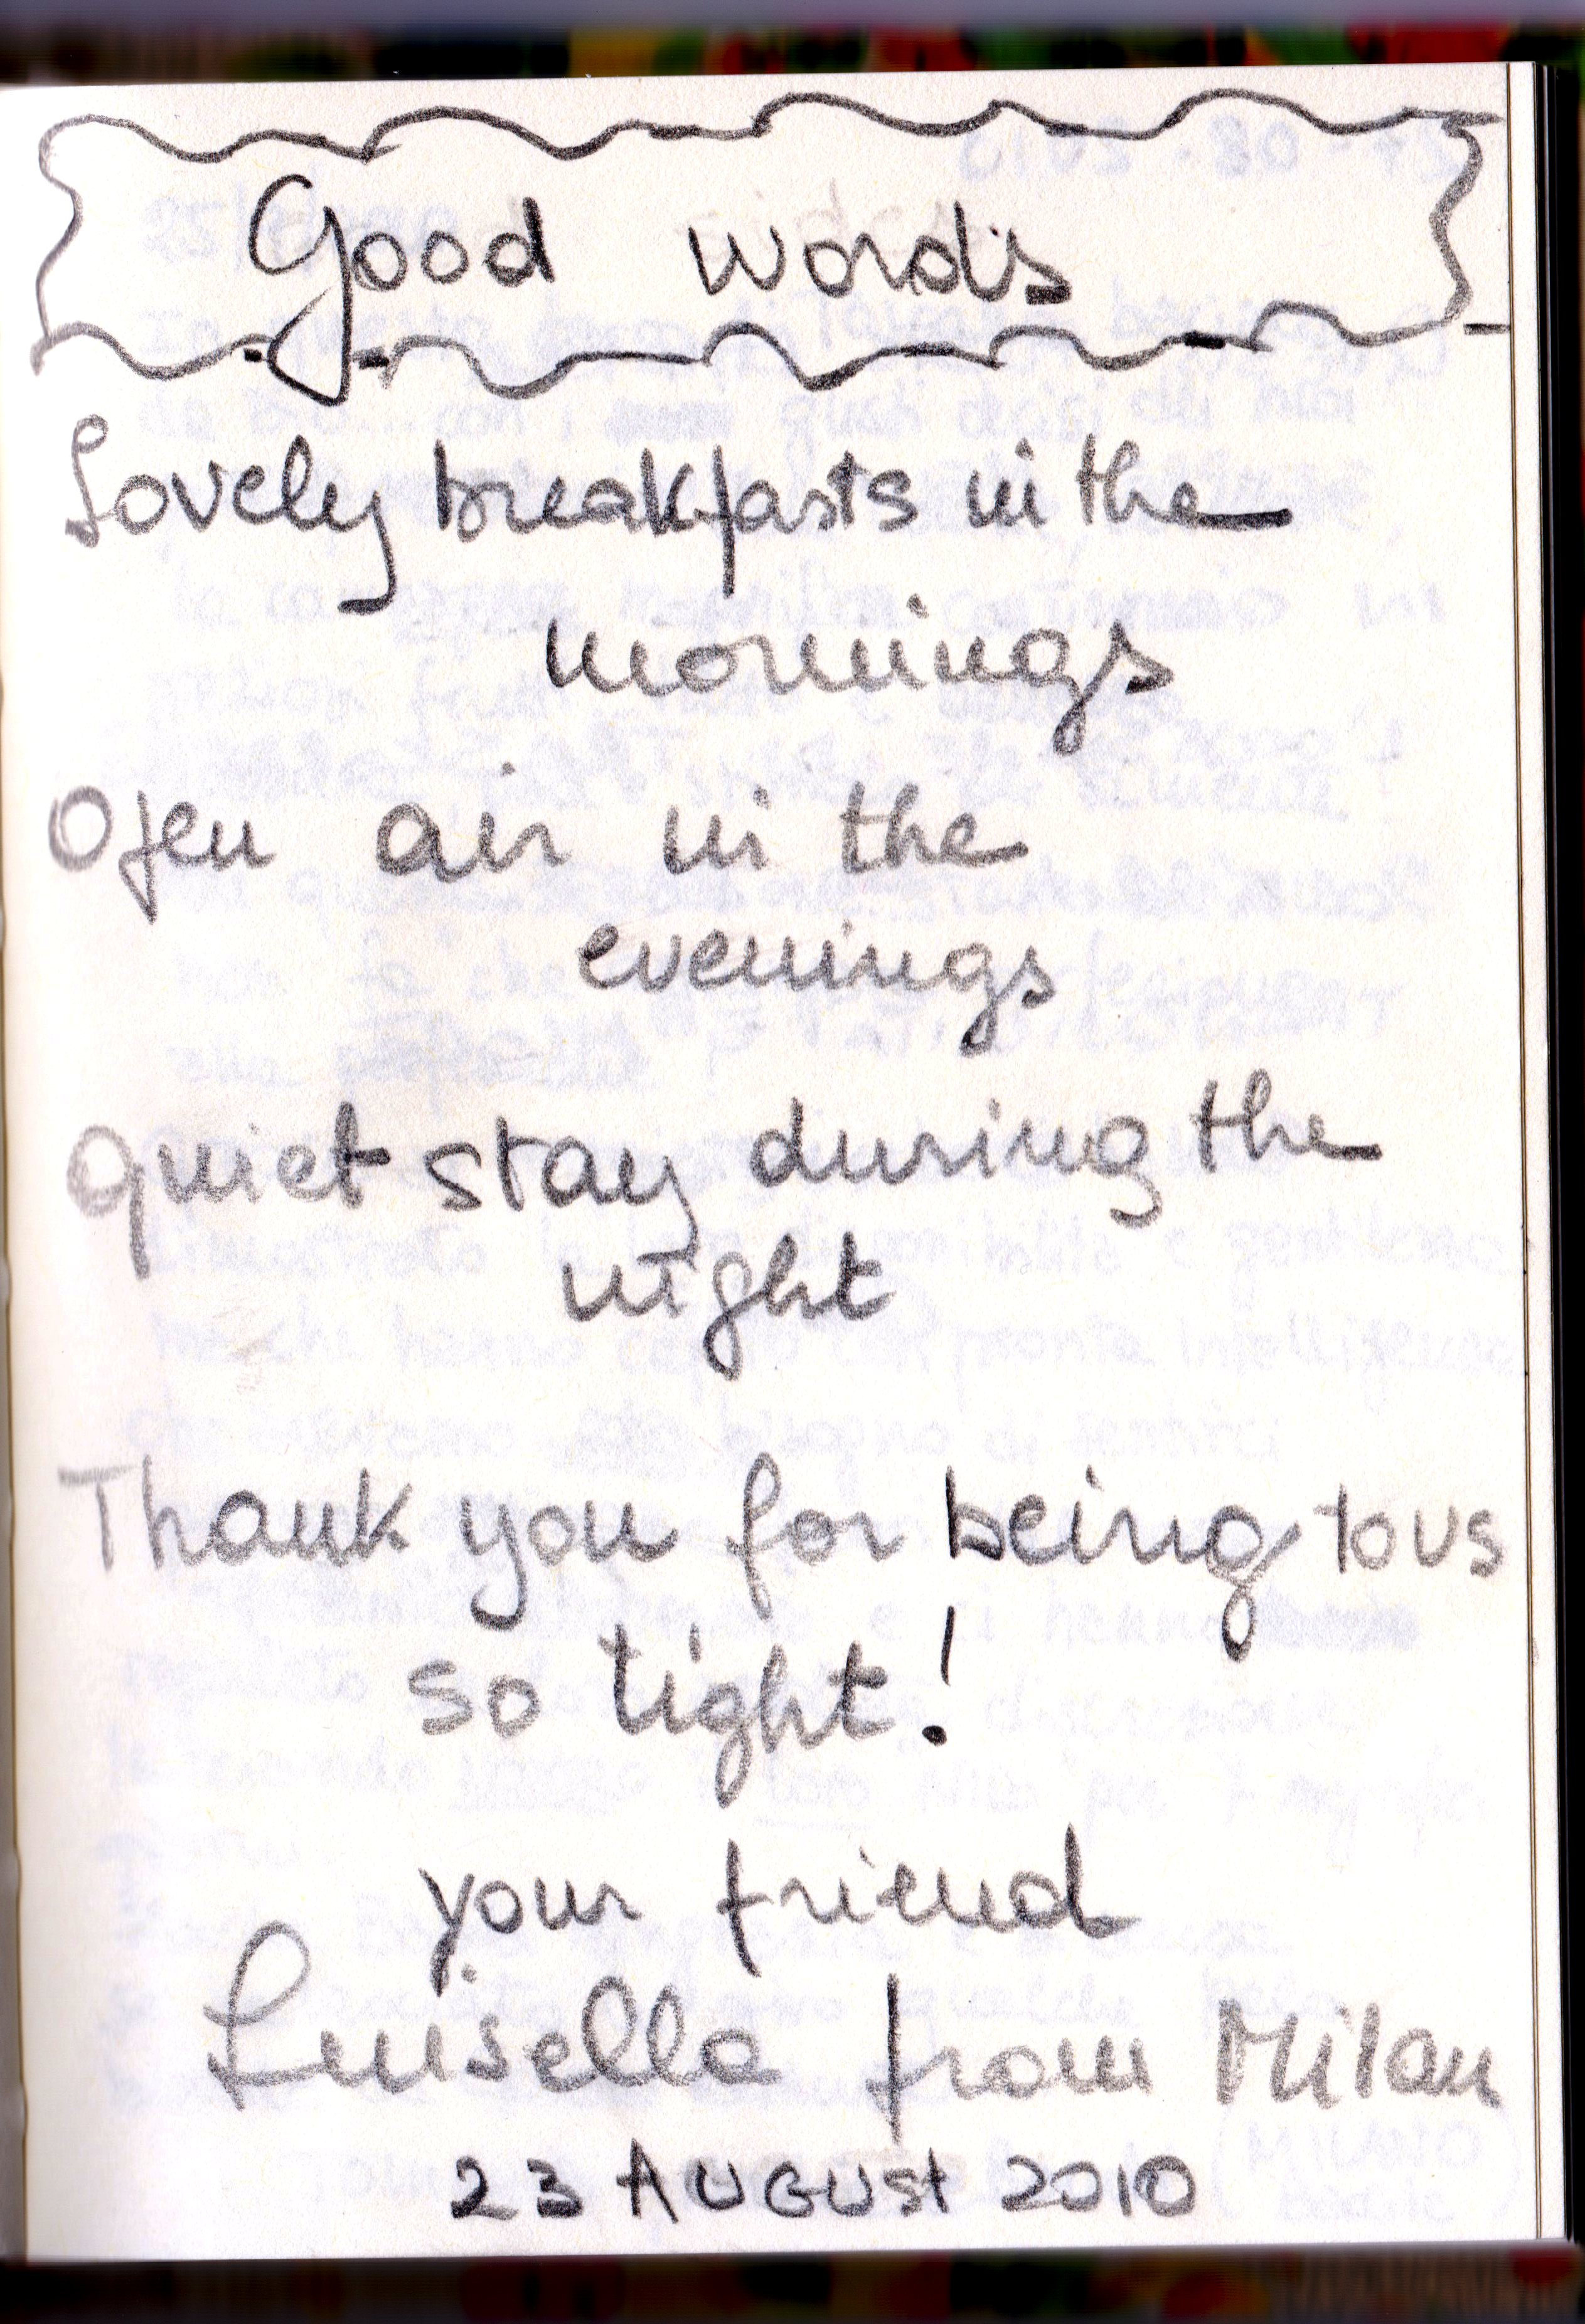 Good words
Lovely breakfasts in the
mornings
Open air in the
evenings
quiet stay during the
night
Thank you for being to us
so tight!
your friend
Luisella from Milan
23 AUGUST 2010